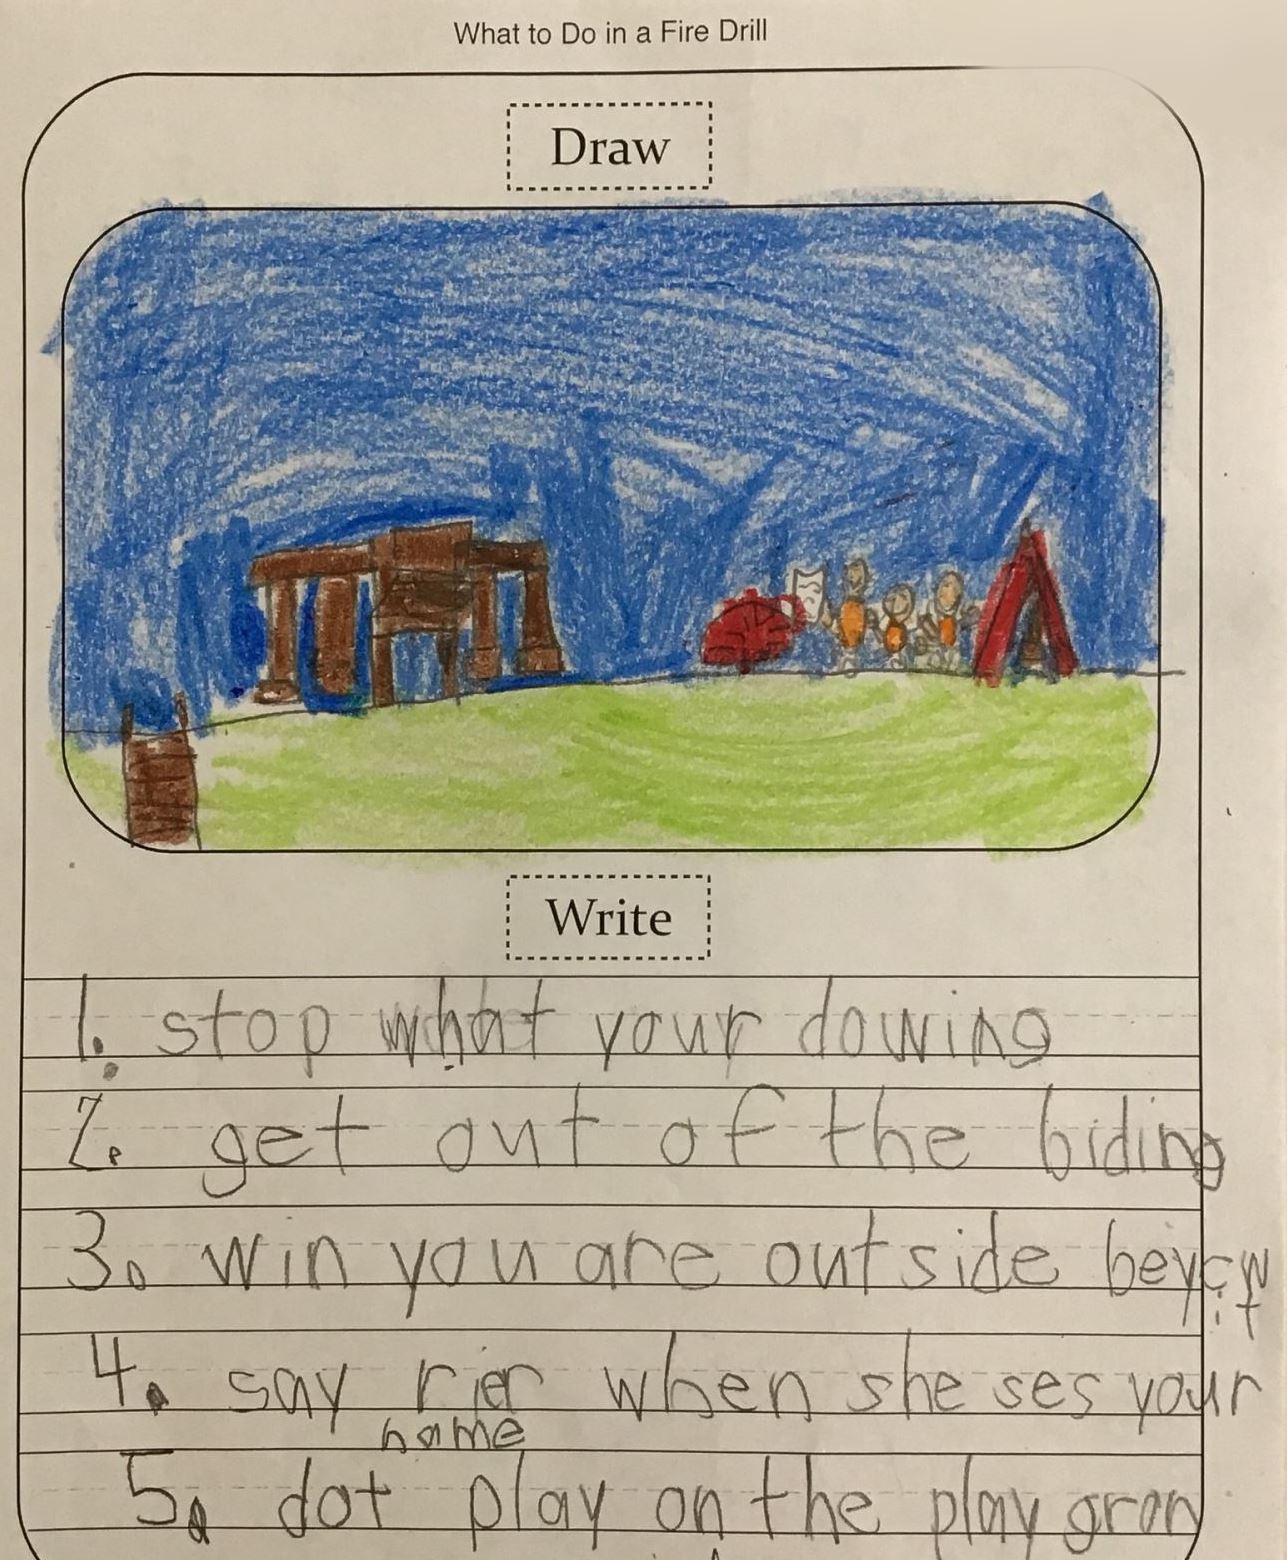 What to Do in a Fire Drill
Draw
Write
1. stop what your dowing
2. get out of the biding
3. win you are outside beycw
it
4. say rier when she ses your
name
5. dot play on the play gron